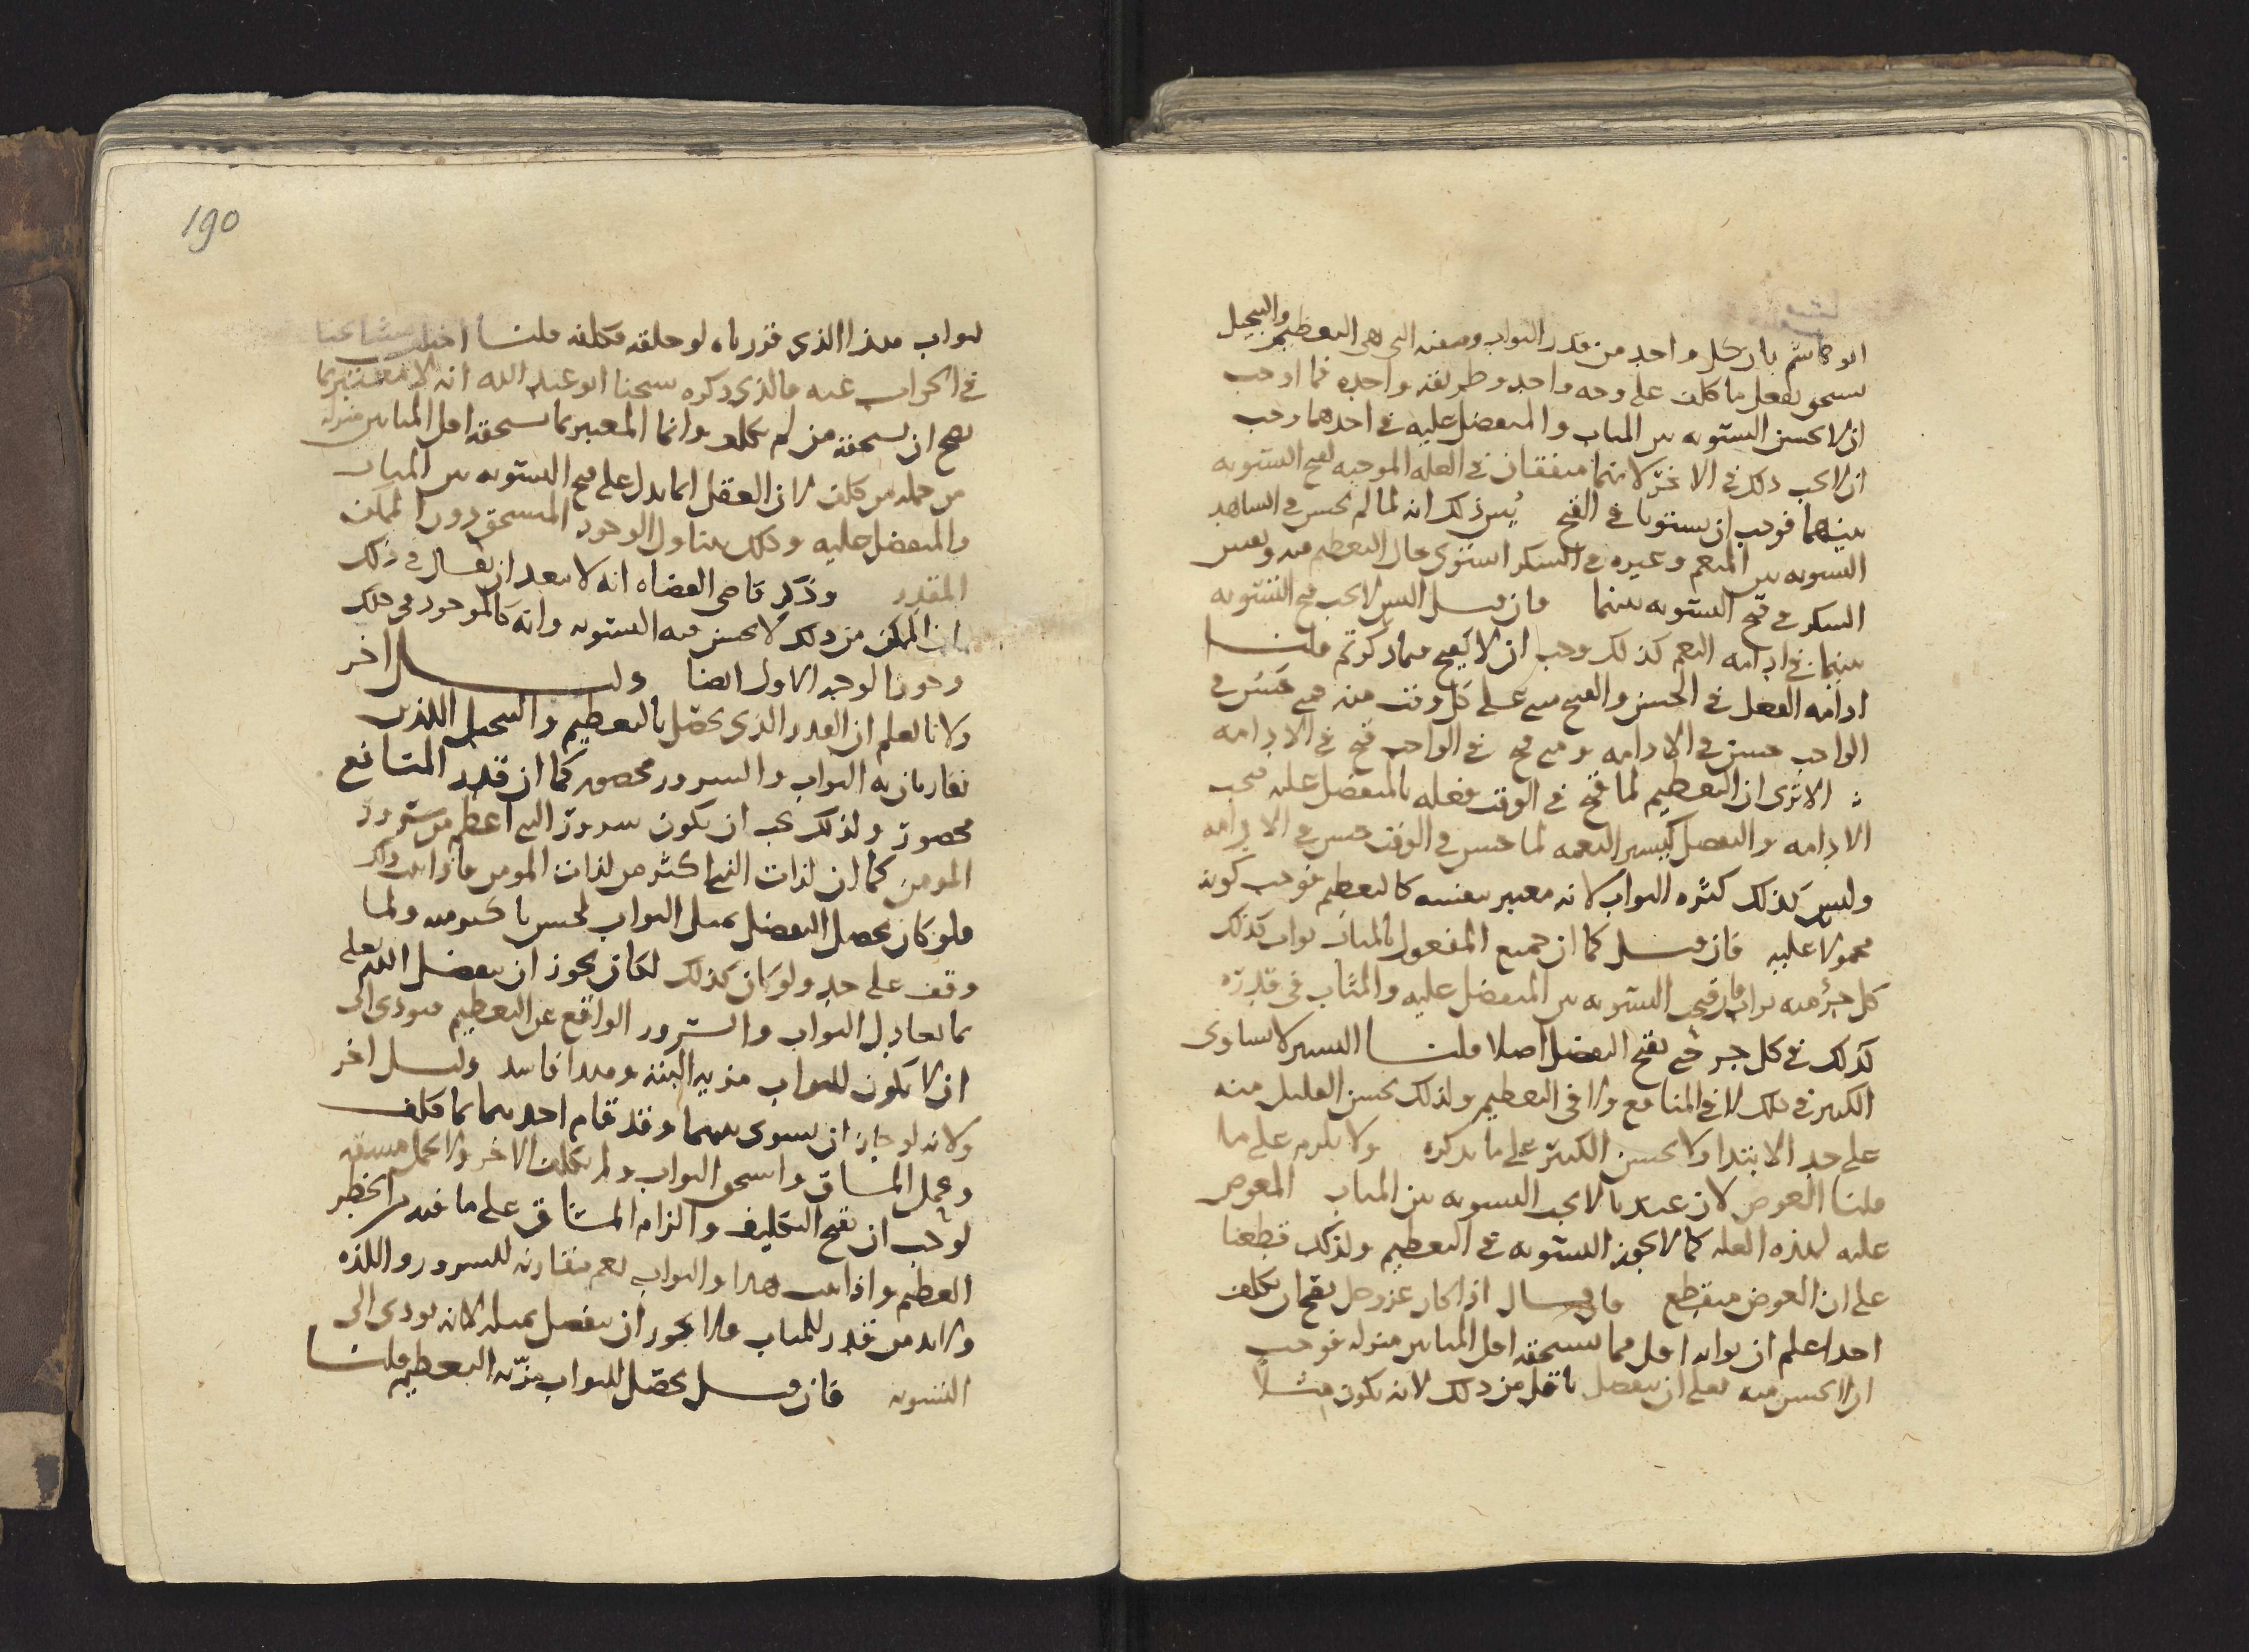 ابو هاشم بان كل واحد من قدر الثواب وصفته التى هى التعظيم والتبجيل
يستحق بفعل ما كلف على وجه واحد وطريقة واحده فما اوجب
ان لا يحسن التسويه بين المثاب والمتفضل عليه فى احدهما وجب
ان لا يجب ذلك فى الاخر لانهما متفقان فى العله الموجبه لقبح التسويه
بينهما فوجب ان يستويا فى القبح يبين ذلك انه لما لم يحسن فى الشاهد
التسويه بين المنعم وغيره فى الشكر استوى حال التعظيم فيه ونفس
الشكر فى قبح التسويه بينهما فان قيل اليس لا يجب قبح التسويه
بينهما فى ادامه النعم كذلك وجب ان لا يقبح فيما ذكرتم قلنا
ادامه الفعل فى الحسن والقبح مبنى على كل وقت منه فمتى حسن فى
الواحب حسن فى الادامه ومتى قبح فى الواحب قبح فى الادامه
الا ترى ان التعظيم لما قبح فى الوقت فعله بالمتفضل عليه فيجب
الادامه والتفضل كيسير النعمه لما حسن فى الوقت حسن فى الادامه
وليس كذلك كثره الثواب لانه معتبر بنفسه كالتعظيم فوجب كونه
محمولا عليه فان قيل كما ان جميع المفعول بالمثاب ثواب كذلك
كل جزء منه ثواب فان قبح التسويه بين المتفضل عليه والمثاب فى قدره
كذلك فى كل جزء حتى يقبح التفضل اصلا قلنا اليسير لا يساوى
الكثير فى ذلك لا فى المنافع ولا فى التعظيم ولذلك يحسن القليل منه
على حد الابتدا ولا يحسن الكثير على ما نذكره ولا يلزم على ما
قلنا العوض لان عندنا لا يجب التسويه بين المثاب المعوض
عليه لهذه العله كما لا يجوز التسويه فى التعظيم ولذلك قطعنا
على ان العوض منقطع فان قال اذا كان عز وجل يقبح ان يكلف
احدا علم ان ثوابه اقل مما يستحقه اقل المثابين منزله فوجب
ان لا يحسن منه تعالى ان يتفضل باقل من ذلك لانه يكون مثلا
190
لثواب هذا الذى قدرناه لو خلقه وكلفه قلنا اختلف مشايخنا
فى الجواب عنه فالذى ذكره شيخنا ابو عبد الله انه لا معتبر بما
يصح ان يستحقه من لم يكلف وانما المعتبر بما يستحقه اقل المثابين منزله
من جمله من كلف لان العقل انما يدل على قبح التسويه بين المثاب
والمتفضل عليه وذلك يتناول الوجود المستحق دون الممكن
المقدر وذكر قاضى القضاه انه لا يبعد ان يقال فى ذلك
بان الممكن من ذلك لا يحسن فيه التسويه وانه كالموجود فى ذلك
وجوز الوجه الاول ايضا دليل اخر
ولانا نعلم ان القدر الذى يختص بالتعظيم والتبجيل اللذين
يقارنان به الثواب والسرور محصور كما ان قدر المنافع
محصور ولذلك يجب ان يكون سرور النبى اعظم من سرور
المومن كما ان لذات النبى اكثر من لذات المومن فاذا ثبت ذلك
فلو كان يحصل التفضل بمثل الثواب لحسن باكثر منه ولما
وقف على حد ولو كان كذلك لكان يجوز ان يتفضل الله تعالى
بما يعادل الثواب والسرور الواقع عن التعظيم فيودى الى
ان لا يكون للثواب مزيه البته وهذا فاسد دليل اخر
ولانه لو جاز ان يسوى بينهما وقد قام احدهما بما كلف
وعمل المشاق واستحق الثواب ولم يكلف الاخر ولا تحمل مشقه
لوجب ان يقبح التكليف والزام المشاق على ما فيه من الخطر
العظيم واذا ثبت هذا والثواب نعم مقارنه للسرور واللذه
ولا بد من قدر للمثاب فلا يجوز ان يتفضل بمثله لانه يودى الى
التسويه فان قيل يحصل للثواب مزيه التعظيم قلنا